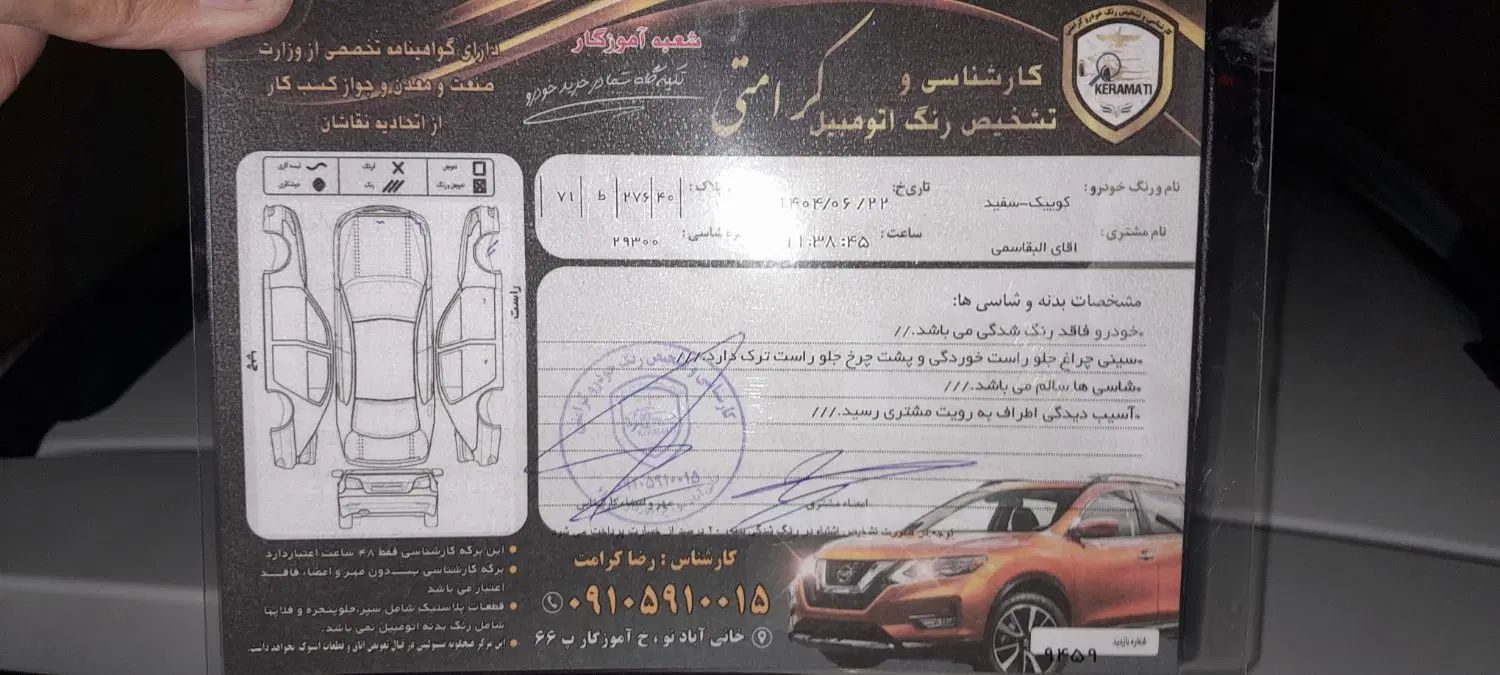 دارای گواهینامه تخصصی از وزارت
صنعت و معدن و جواز کسب کار
از اتحادیه نقاشان
شعبه آموزگار
تکیه گاه شما در خرید خودرو
کارشناسی و
تشخیص رنگ اتومبیل
کرامتی
کارشناسی و تشخیص رنگ خودرو کرامتی
KERAMATI
تعویض
لیسه گلگیر
رنگ
تعویض و رنگ
راست
چپ
نام و رنگ خودرو: کوییک-سفید
تاریخ: ۱۴۰۴/۰۶/۲۲
پلاک: ۴۰ ۲۷۶ ط ۷۱
نام مشتری: اقای البقاسمی
ساعت: ۱۱:۳۸:۴۵
شاسی: ۲۹۳۰۰
مشخصات بدنه و شاسی ها:
*خودرو فاقد رنگ شدگی می باشد.//
*سینی چراغ جلو راست خوردگی و پشت چرخ جلو راست ترک دارد.///
*شاسی ها سالم می باشد.///
*آسیب دیدگی اطراف به رویت مشتری رسید.///
امضاء مشتری
مهر و امضاء کارشناس
این برگه کارشناسی فقط ۴۸ ساعت اعتبار دارد
برگه کارشناسی بدون مهر و امضاء، فاقد
اعتبار می باشد
قطعات پلاستیک شامل سپر، جلوپنجره و فلاپها
شامل رنگ بدنه اتومبیل نمی باشد.
این مرکز هیچگونه مسئولیتی در قبال تعویض اتاق و قطعات استوک نخواهد داشت.
کارشناس : رضا کرامت
۰۹۱۰۵۹۱۰۰۱۵
خانی آباد نو ، خ آموزگار پ ۶۶
شماره بازدید
۹۴۵۹